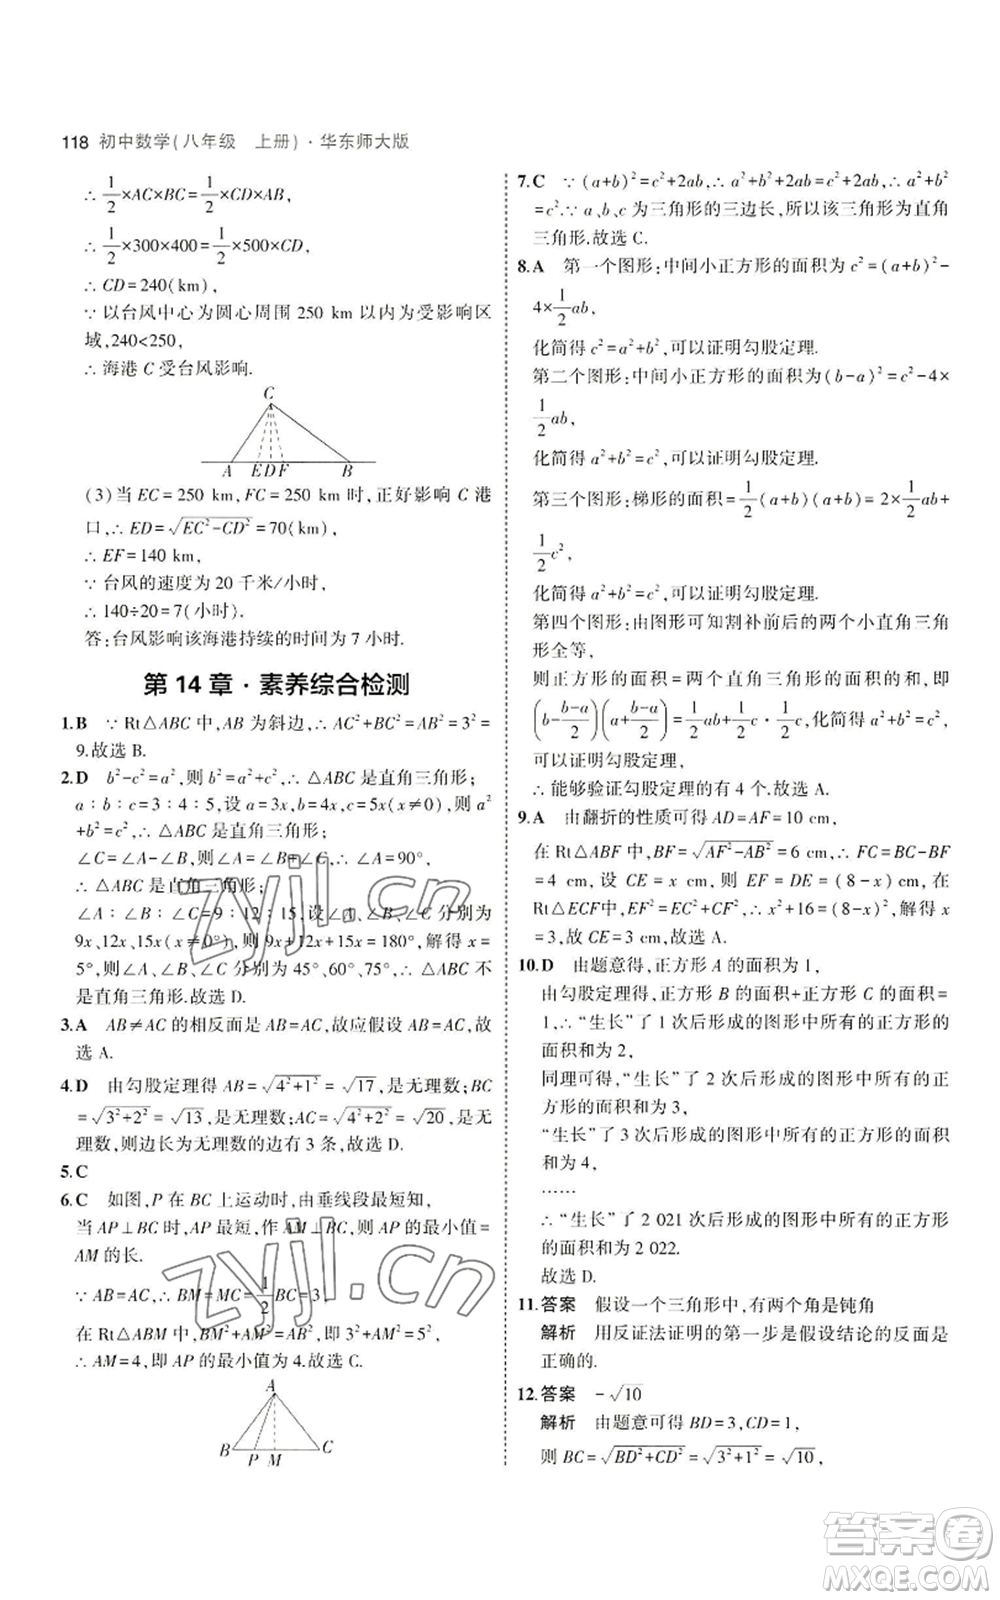 118 初中数学(八年级 上册)·华东师大版
∴ 1/2×AC×BC=1/2×CD×AB,
∴ 1/2×300×400=1/2×500×CD,
∴ CD=240(km),
∵ 以台风中心为圆心周围 250 km 以内为受影响区
域,240<250,
∴ 海港 C 受台风影响.
C
A E D F B
(3)当 EC=250 km,FC=250 km 时,正好影响 C 港
口,∴ ED=√(EC²-CD²)=70(km),
∴ EF=140 km,
∵ 台风的速度为 20 千米/小时,
∴ 140÷20=7(小时).
答:台风影响该海港持续的时间为 7 小时.
第 14 章·素养综合检测
1.B ∵ Rt△ABC 中,AB 为斜边,∴ AC²+BC²=AB²=3²=
9.故选 B.
2.D b²-c²=a²,则 b²=a²+c²,∴ △ABC 是直角三角形;
a:b:c=3:4:5,设 a=3x,b=4x,c=5x(x≠0),则 a²
+b²=c²,∴ △ABC 是直角三角形;
∠C=∠A-∠B,则∠A=∠B+∠C,∴ ∠A=90°,
∴ △ABC 是直角三角形;
∠A:∠B:∠C=9:12:15,设∠A、∠B、∠C 分别为
9x、12x、15x(x≠0),则 9x+12x+15x=180°,解得 x=
5°,则∠A、∠B、∠C 分别为 45°,60°,75°,∴ △ABC 不
是直角三角形.故选 D.
3.A AB≠AC 的相反面是 AB=AC,故应假设 AB=AC,故
选 A.
4.D 由勾股定理得 AB=√(4²+1²)=√17,是无理数;BC
=√(3²+2²)=√13,是无理数;AC=√(4²+2²)=√20,是无
理数,则边长为无理数的边有 3 条,故选 D.
5.C
6.C 如图,P 在 BC 上运动时,由垂线段最短知,
当 AP⊥BC 时,AP 最短,作 AM⊥BC,则 AP 的最小值=
AM 的长.
∵ AB=AC,∴ BM=MC=1/2BC=3,
在 Rt△ABM 中,AM²+BM²=AB²,即 AM²+3²=5²,
∴ AM=4,即 AP 的最小值为 4.故选 C.
A
B P M C
7.C ∵ (a+b)²=c²+2ab,∴ a²+b²+2ab=c²+2ab,∴ a²+b²
=c².∵ a、b、c 为三角形的三边长,所以该三角形为直角
三角形.故选 C.
8.A 第一个图形:中间小正方形的面积为 c²=(a+b)²-
4×1/2ab,
化简得 c²=a²+b²,可以证明勾股定理.
第二个图形:中间小正方形的面积为(b-a)²=c²-4×
1/2ab,
化简得 a²+b²=c²,可以证明勾股定理.
第三个图形:梯形的面积=1/2(a+b)(a+b)=2×1/2ab+
1/2c²,
化简得 a²+b²=c²,可以证明勾股定理.
第四个图形:由图形可知割补前后的两个小直角三角
形全等,
则正方形的面积=两个直角三角形的面积的和,即
(b-(b-a)/2)(a+(b-a)/2)=1/2ab+1/2c·1/2c,化简得 a²+b²=c²,
可以证明勾股定理.
∴ 能够验证勾股定理的有 4 个.故选 A.
9.A 由翻折的性质可得 AD=AF=10 cm,
在 Rt△ABF 中,BF=√(AF²-AB²)=6 cm,∴ FC=BC-BF
=4 cm,设 CE=x cm,则 EF=DE=(8-x)cm,在
Rt△ECF中,EF²=EC²+FC²,∴ x²+16=(8-x)²,解得 x
=3,故 CE=3 cm,故选 A.
10.D 由题意得,正方形 A 的面积为 1,
由勾股定理得,正方形 B 的面积+正方形 C 的面积=
1,∴“生长”了 1 次后形成的图形中所有的正方形的
面积和为 2,
同理可得,“生长”了 2 次后形成的图形中所有的正
方形的面积和为 3,
“生长”了 3 次后形成的图形中所有的正方形的面积
和为 4,
……
∴“生长”了 2 021 次后形成的图形中所有的正方形
的面积和为 2 022.
故选 D.
11.答案 假设一个三角形中,有两个角是钝角
解析 用反证法证明的第一步是假设结论的反面是
正确的.
12.答案 -√10
解析 由题意可得 BD=3,CD=1,
则 BC=√(BD²+CD²)=√(3²+1²)=√10,
zyjl.cn
zyjl.cn
答案圈
MXQE.COM